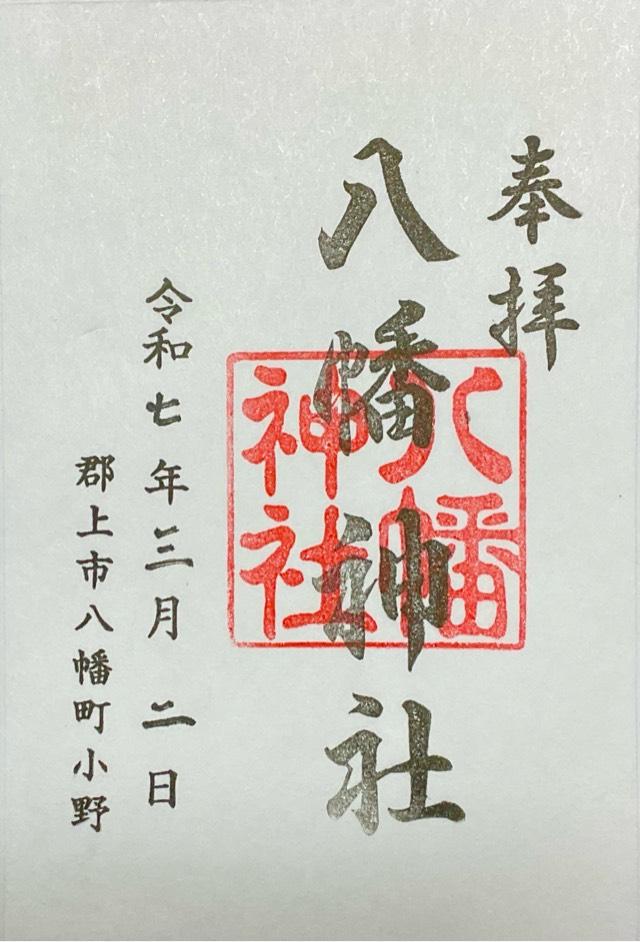 奉拝
八幡神社
八幡
神社
令和七年三月二日
郡上市八幡町小野